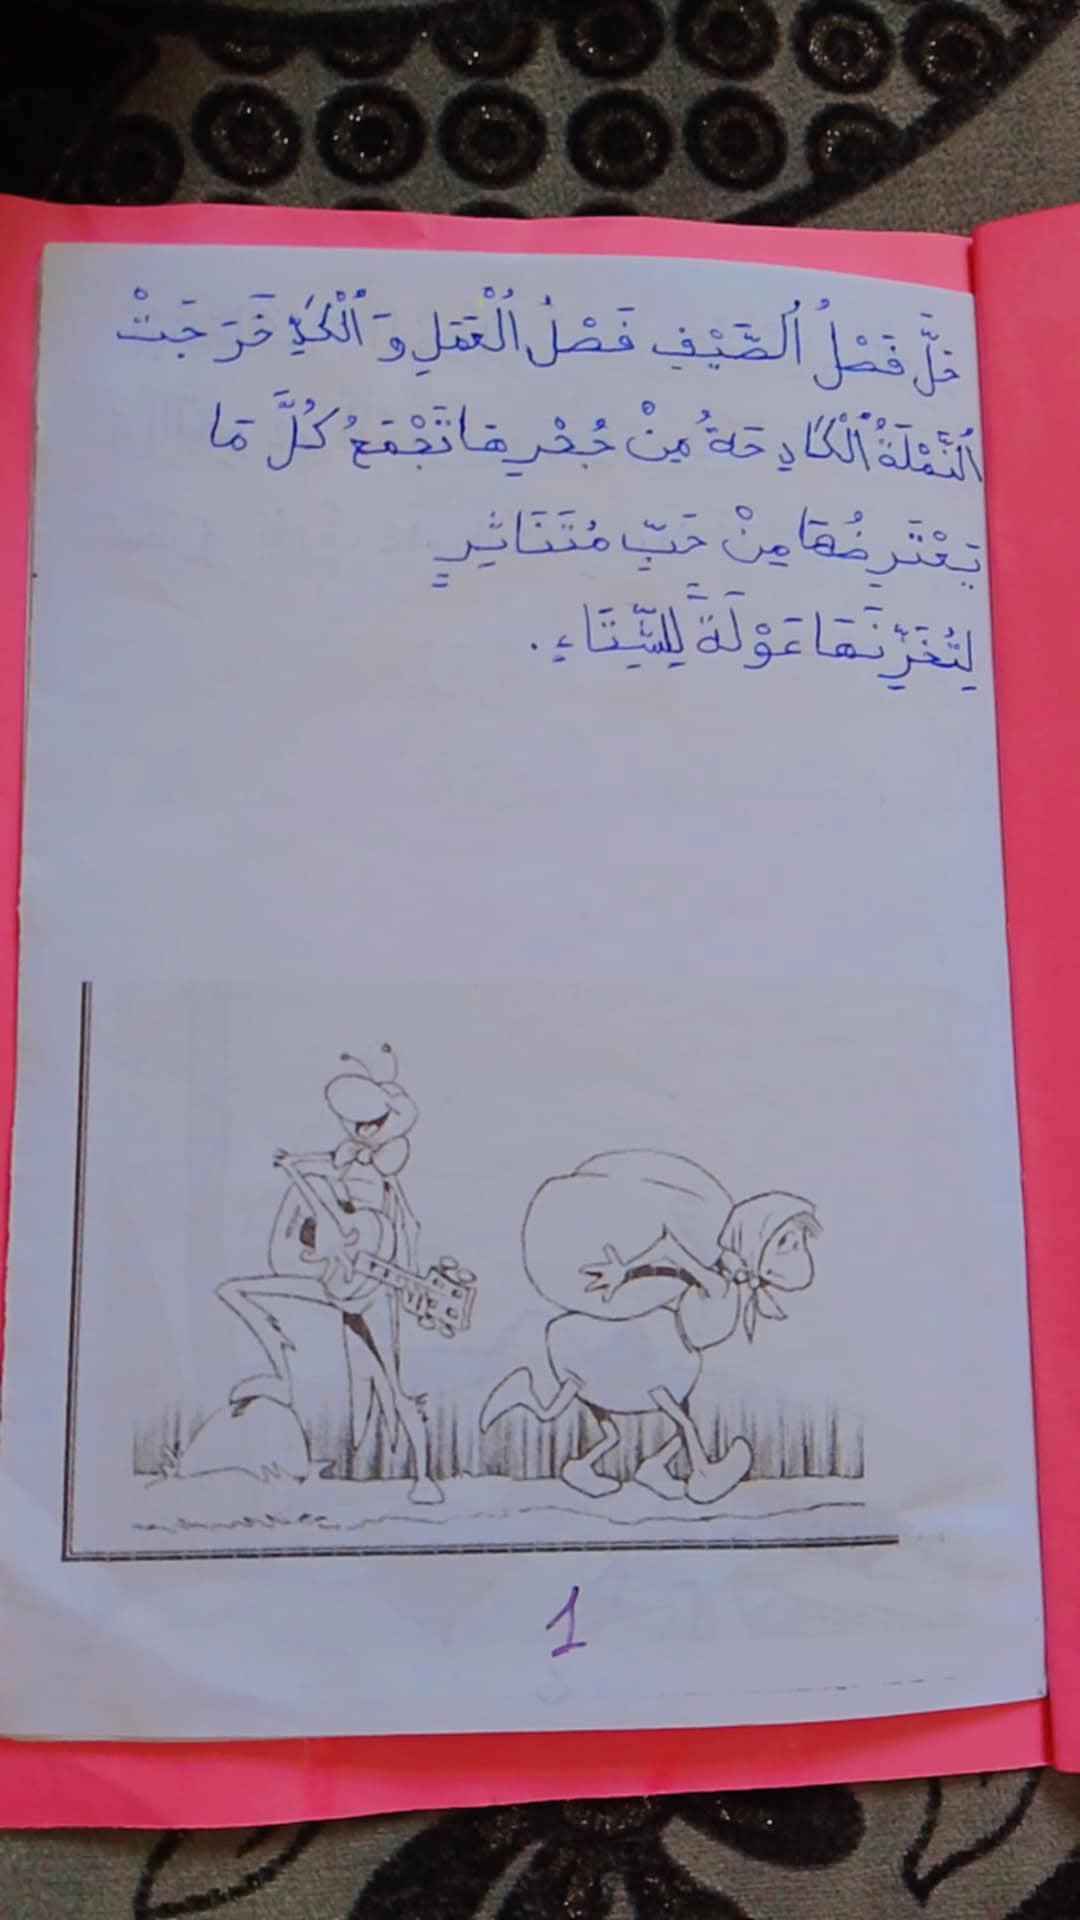 حَلَّ فَصْلُ ٱلصَّيْفِ فَصْلُ ٱلْعَمَلِ وَ ٱلْكَدِّ خَرَجَتْ
ٱلنَّمْلَةُ ٱلْكَادِحَةُ مِنْ جُحْرِهَا تَجْمَعُ كُلَّ مَا
يَعْتَرِضُهَا مِنْ حَبٍّ مُتَنَاثِرٍ
لِتُخَزِّنَهَا عَوْلَةً لِلشِّتَاءِ.
1